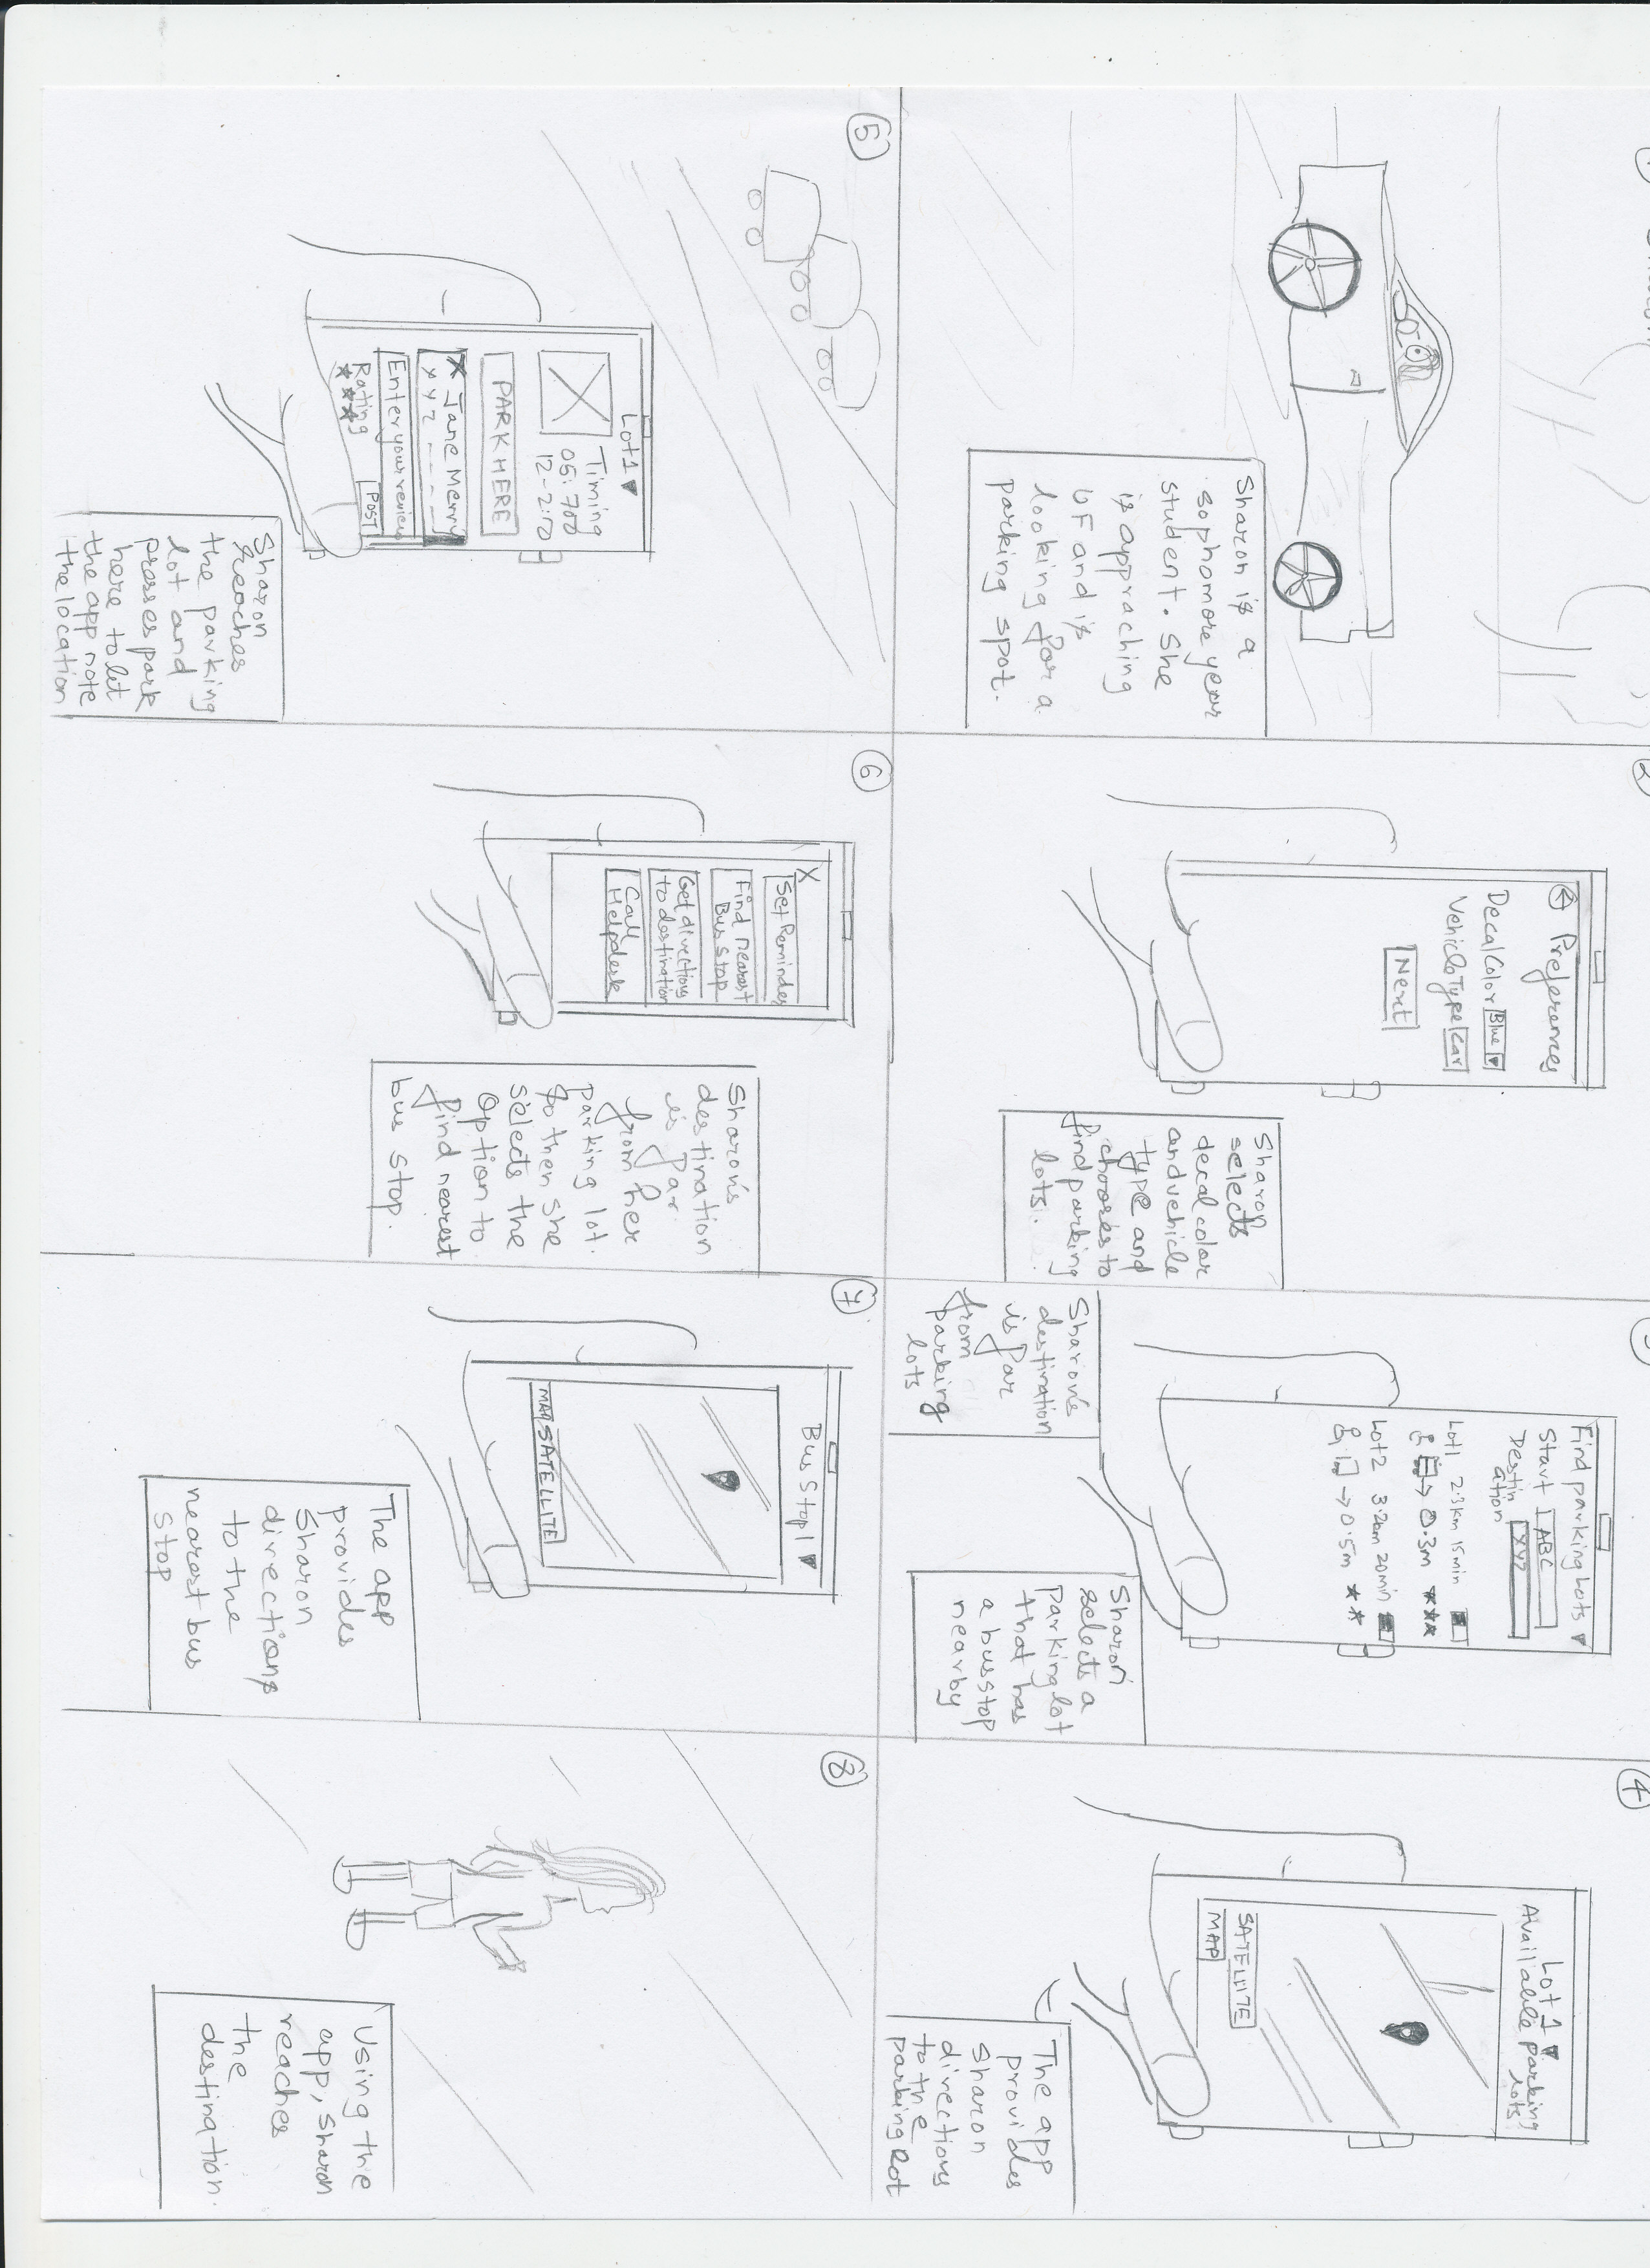 1
Sharon is a
sophomore year
student. She
is appraching
UF and is
looking for a
parking spot.
2
Preferences
Decal Color Blue
Vehicle Type Car
Next
Sharon
selects
decal color
and vehicle
type and
chooses to
find parking
lots.
3
Find parking Lots
Start ABC
Destin
ation XYZ
Lot1 2.3km 15min
→ 0.3m ★★★
Lot2 3.2km 20min
→ 0.5m ★★
Sharon's
destination
is far
from
parking
lots
Sharon
selects a
parking lot
that has
a bus stop
nearby
4
Lot 1
Available parking
lots
SATELLITE
MAP
The app
provides
Sharon
directions
to the
parking lot
5
Lot1
Timing
05:700
12-2:00
PARK HERE
Jane Merry
XYZ ----
Enter your review
Rating POST
★★★
Sharon
reaches
the parking
lot and
presses park
here to let
the app note
the location
6
X
Set Reminder
Find nearest
Bus Stop
Get directions
to destination
Call
Helpdesk
Sharon's
destination
is far
from her
parking lot.
So then she
selects the
option to
find nearest
bus stop.
7
Bus Stop1
MAP SATELLITE
The app
provides
Sharon
directions
to the
nearest bus
stop
8
Using the
app, Sharon
reaches
the
destination.